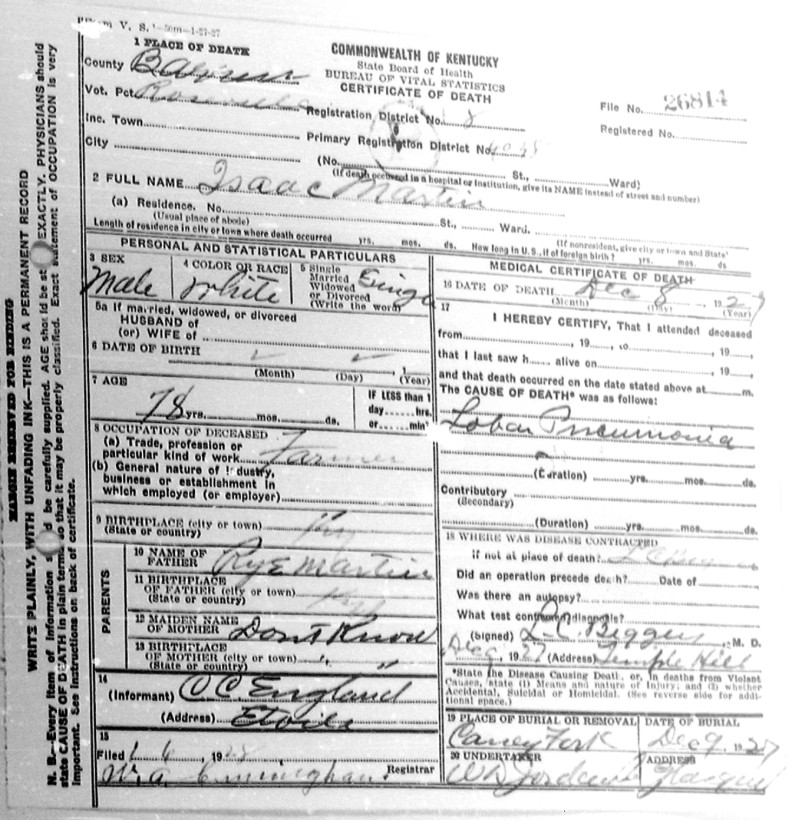 Form V. S. 1-50m-1-27-27
1 PLACE OF DEATH
COMMONWEALTH OF KENTUCKY
State Board of Health
BUREAU OF VITAL STATISTICS
CERTIFICATE OF DEATH
County Barren
Vot. Pct.
File No. 26814
Registration District No. 8
Registered No.
Inc. Town
Primary Registration District No.
City
(No. St., Ward)
(If death occurred in a hospital or institution, give its NAME instead of street and number)
2 FULL NAME Isaac Martin
(a) Residence. No. St., Ward.
(Usual place of abode) (If nonresident, give city or town and State)
Length of residence in city or town where death occurred yrs. mos. ds. How long in U.S., if of foreign birth? yrs. mos. ds
PERSONAL AND STATISTICAL PARTICULARS
3 SEX Male
4 COLOR OR RACE White
5 Single
Married
Widowed
or Divorced
(Write the word)
Single
5a If married, widowed, or divorced
HUSBAND of
(or) WIFE of
6 DATE OF BIRTH , 1
(Month) (Day) (Year)
7 AGE
78 yrs. mos. ds.
IF LESS than 1
day hrs.
or min
8 OCCUPATION OF DECEASED
(a) Trade, profession or
particular kind of work Farmer
(b) General nature of industry,
business or establishment in
which employed (or employer)
9 BIRTHPLACE (city or town)
(State or country) Ky
PARENTS
10 NAME OF
FATHER Rye Martin
11 BIRTHPLACE
OF FATHER (city or town)
(State or country) Ky
12 MAIDEN NAME
OF MOTHER Dont Know
13 BIRTHPLACE
OF MOTHER (city or town)
(State or country) " "
14
(Informant) C C England
(Address) Etoile
15
Filed 1 6 1928
W. A. Cunningham Registrar
MEDICAL CERTIFICATE OF DEATH
16 DATE OF DEATH Dec 8, 1927
(Month) (Day) (Year)
17
I HEREBY CERTIFY, That I attended deceased
from , 19 , to , 19
that I last saw h alive on , 19
and that death occurred on the date stated above at m.
The CAUSE OF DEATH* was as follows:
Lobar Pneumonia
(Duration) yrs. mos. ds.
Contributory
(Secondary)
(Duration) yrs. mos. ds.
18 WHERE WAS DISEASE CONTRACTED
if not at place of death?
Did an operation precede death? Date of
Was there an autopsy?
What test confirmed diagnosis?
(Signed) L. C. Biggers, M. D.
Dec 9, 1927 (Address) Temple Hill
*State the Disease Causing Death, or, in deaths from Violent
Causes, state (1) Means and nature of Injury; and (2) whether
Accidental, Suicidal or Homicidal. (See reverse side for addi-
tional space.)
19 PLACE OF BURIAL OR REMOVAL
DATE OF BURIAL
Caney Fork Dec 9 1927
20 UNDERTAKER
ADDRESS
Glasgow
MARGIN RESERVED FOR BINDING
WRITE PLAINLY, WITH UNFADING INK—THIS IS A PERMANENT RECORD
N. B.—Every item of information should be carefully supplied. AGE should be stated EXACTLY. PHYSICIANS should
state CAUSE OF DEATH in plain terms, so that it may be properly classified. Exact statement of OCCUPATION is very
important. See instructions on back of certificate.